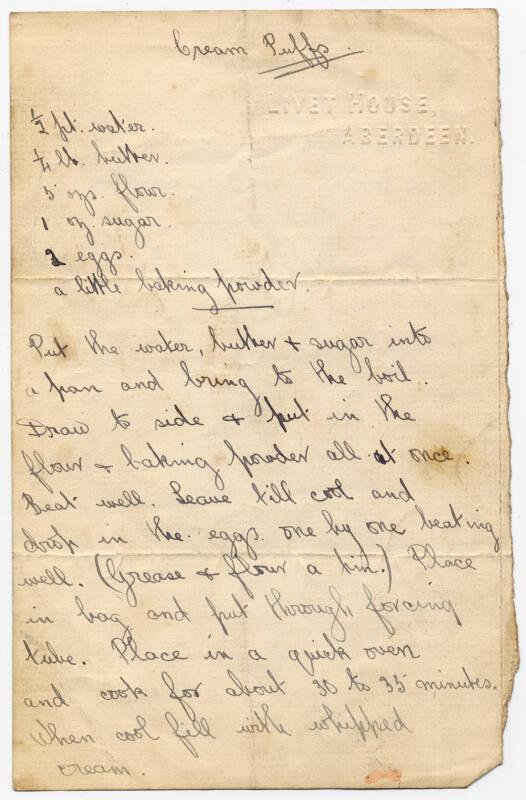 Cream Puffs.
LIVET HOUSE,
ABERDEEN.
½ pt. water.
¼ lb. butter.
5 ozs. flour.
1 oz sugar.
2 eggs.
a little baking powder.
Put the water, butter + sugar into
a pan and bring to the boil.
Draw to side + put in the
flour + baking powder all at once.
Beat well. Leave till cool and
drop in the eggs one by one beating
well. (Grease + flour a tin.) Place
in bag and put through forcing
tube. Place in a quick oven
and cook for about 30 to 35 minutes.
When cool fill with whipped
cream.